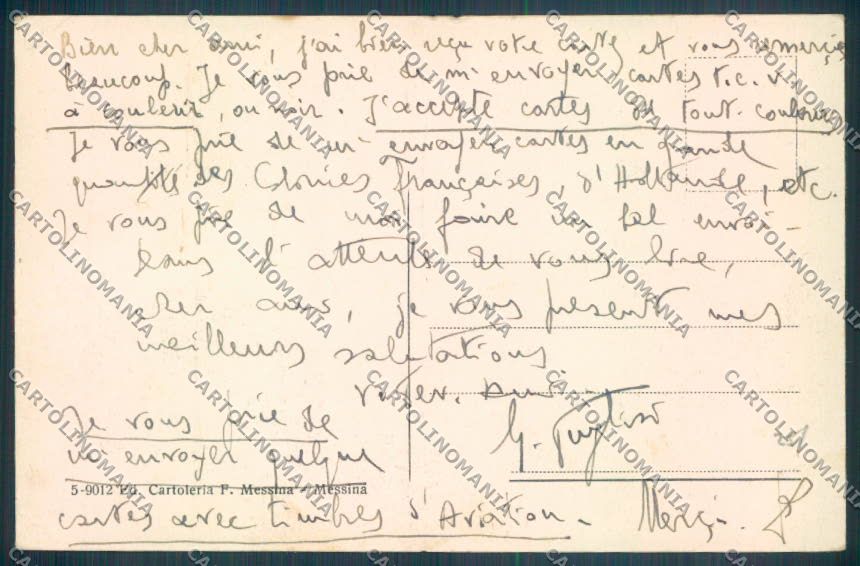 Bien cher ami, j'ai bien reçu votre carte et vous remercie
beaucoup. Je vous prie de m'envoyer cartes t.c.v.
à couleur, ou noir. J'accepte cartes de tout couleurs
Je vous prie de m'envoyer cartes en grande
quantité des Colonies Françaises, d'Hollande, etc.
Je vous prie de moi faire un bel envoi -
Dans l'attente de vous lire,
cher ami, je vous présente mes
meilleurs salutations
votre. ami
G. Puglisi
Je vous prie de
m'envoyer quelque
5-9012 Ed. Cartoleria F. Messina - Messina
cartes avec timbres d'Aviation. Merçi.
CARTOLINOMANIA